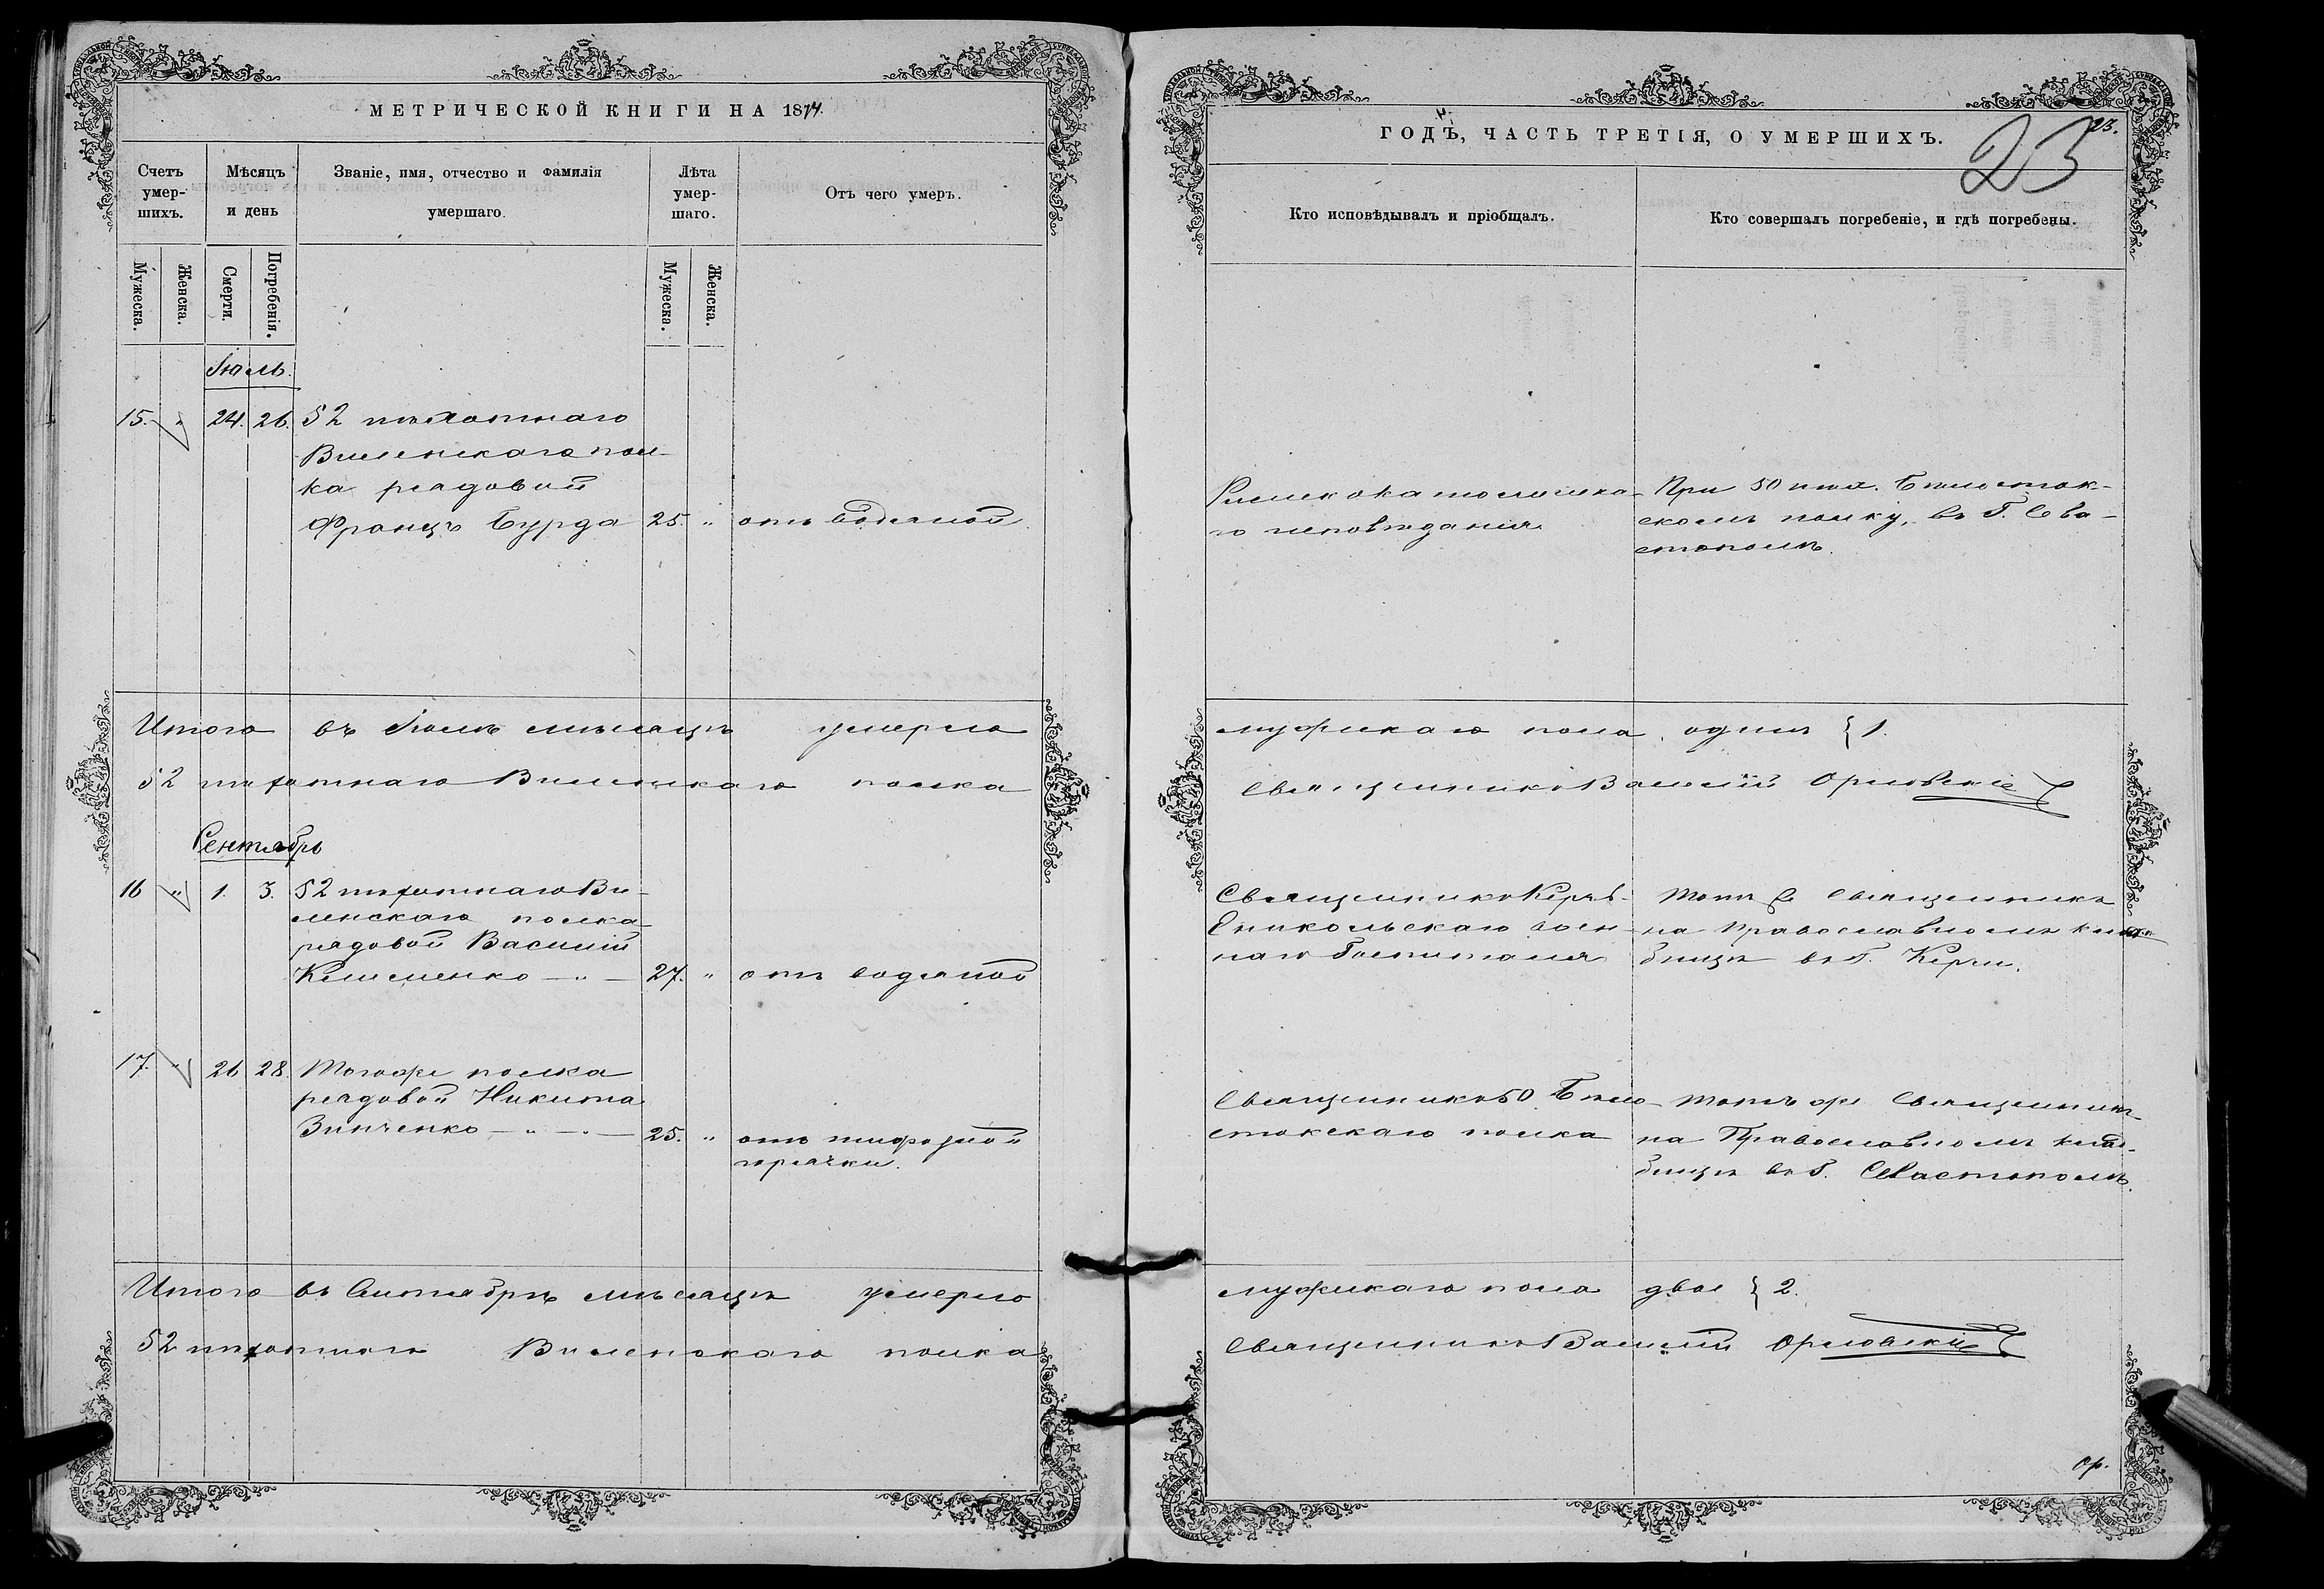 МЕТРИЧЕСКОЙ КНИГИ НА 1874.
Счетъ умер- шихъ.
Мѣсяцъ и день
Званіе, имя, отчество и фамилія умершаго.
Лѣта умер- шаго.
Отъ чего умеръ.
Мужеска.
Женска.
Смерти.
Погребенія.
Мужеска.
Женска.
Іюль.
15. " 24. 26. 52 пѣхотнаго
Виленскаго пол-
ка рядовой
Францъ Бурда 25. " отъ водяной.
Итого въ Іюлѣ мѣсяцѣ умерло
52 пѣхотнаго Виленскаго полка
Сентябрь
16 " 1. 3. 52 пѣхотнаго Ви-
ленскаго полка
рядовой Василій
Клименко — " — 27. " отъ водяной
17. " 26 28. Тогоже полка
рядовой Никита
Зинченко — " — " — 25. " отъ тифозной
горячки.
Итого въ Сентябрѣ мѣсяцѣ умерло
52 пѣхотнаго Виленскаго полка
ГОДЪ, ЧАСТЬ ТРЕТІЯ, О УМЕРШИХЪ.
23.
23
Кто исповѣдывалъ и пріобщалъ.
Кто совершалъ погребеніе, и гдѣ погребены.
Римско католическа-
го исповѣданія
При 50 пѣх. Бѣлосток-
скомъ полку, въ Г. Сева-
стополѣ.
мужскаго пола одинъ } 1.
Священникъ Василій Орловскій
Священникъ Керчь-
Еникольскаго воен-
наго Госпиталя
Тотъ же Священникъ
на Православномъ клад-
бищѣ въ Г. Керчи.
Священникъ 50 Бѣло-
стокскаго полка
Тотъ же Священникъ
на Православномъ клад-
бищѣ въ Г. Севастополѣ.
мужскаго пола двое } 2.
Священникъ Василій Орловскій
Ор.